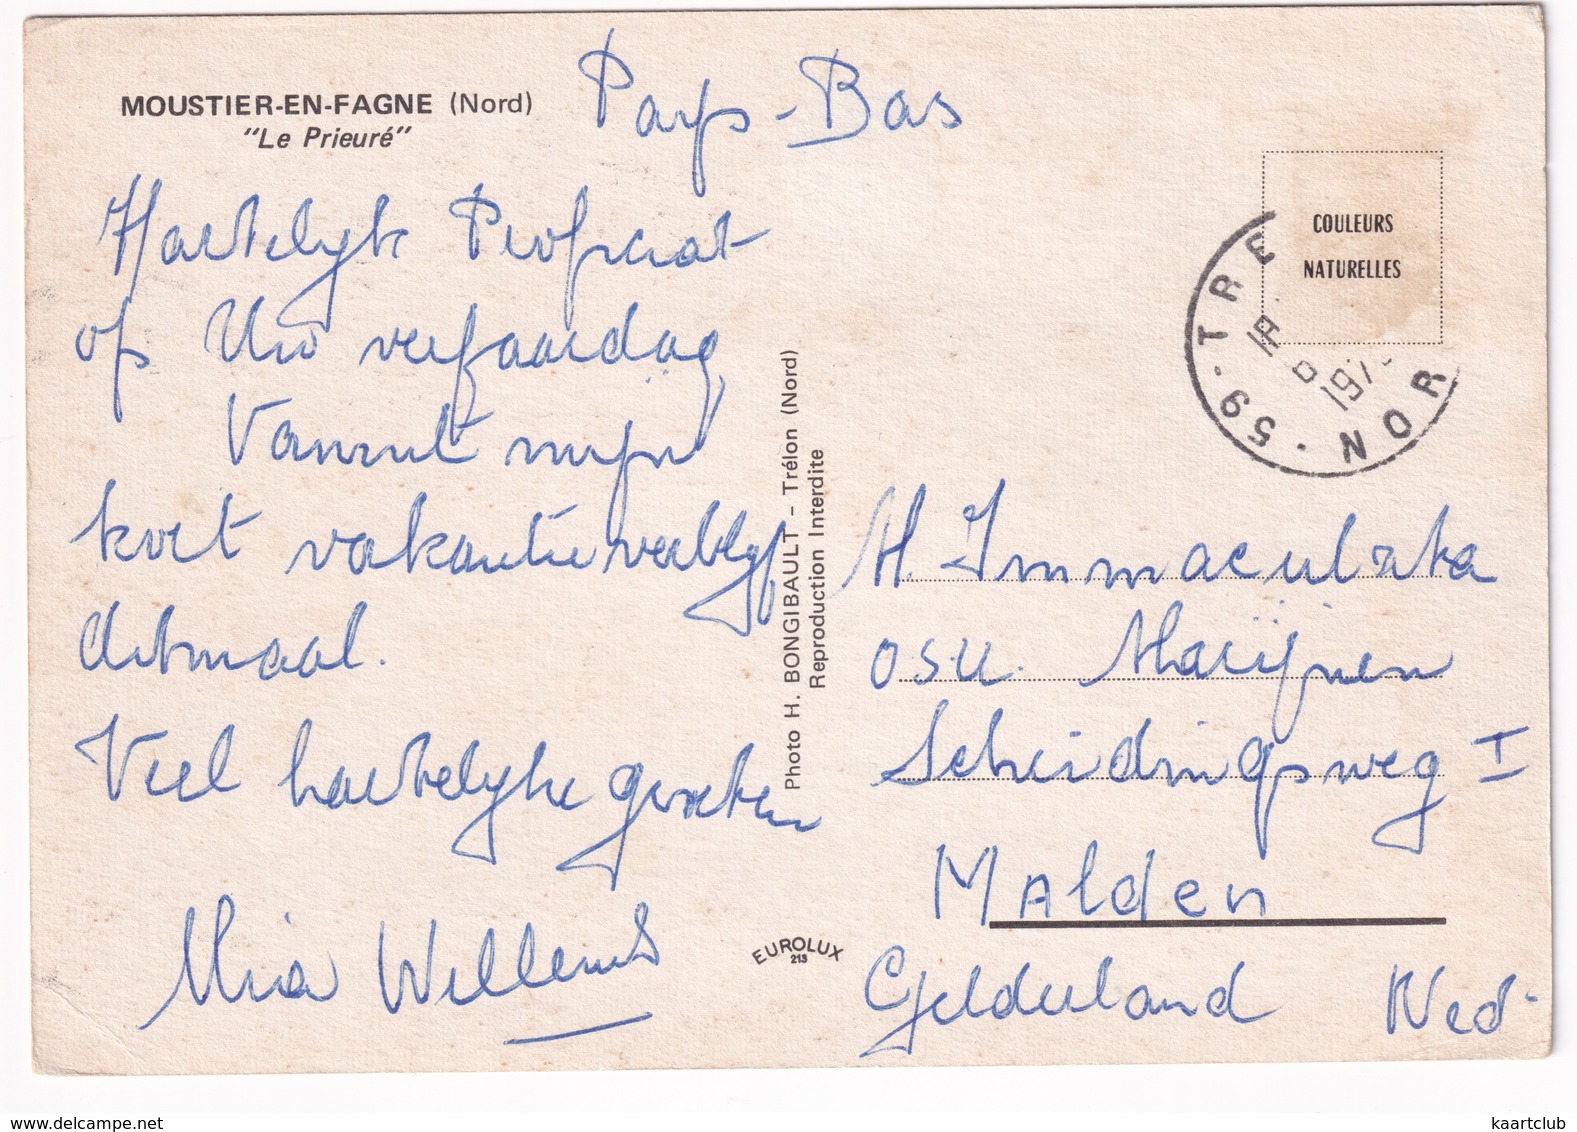 MOUSTIER-EN-FAGNE (Nord)
"Le Prieuré"
Pays-Bas
Hartelyk Proficiat
op Uw verjaardag
Vanuit mijn
kort vakantieverblyf
ditmaal.
Veel hartelyke groeten
Mia Willems
Photo H. BONGIBAULT - Trélon (Nord)
Reproduction Interdite
EUROLUX
213
COULEURS
NATURELLES
59 - TRE
197
NOR
M. Immaculata
o.s.u. Marijnen
Scheidingsweg I
Malden
Gelderland Ned-
www.delcampe.net
kaartclub